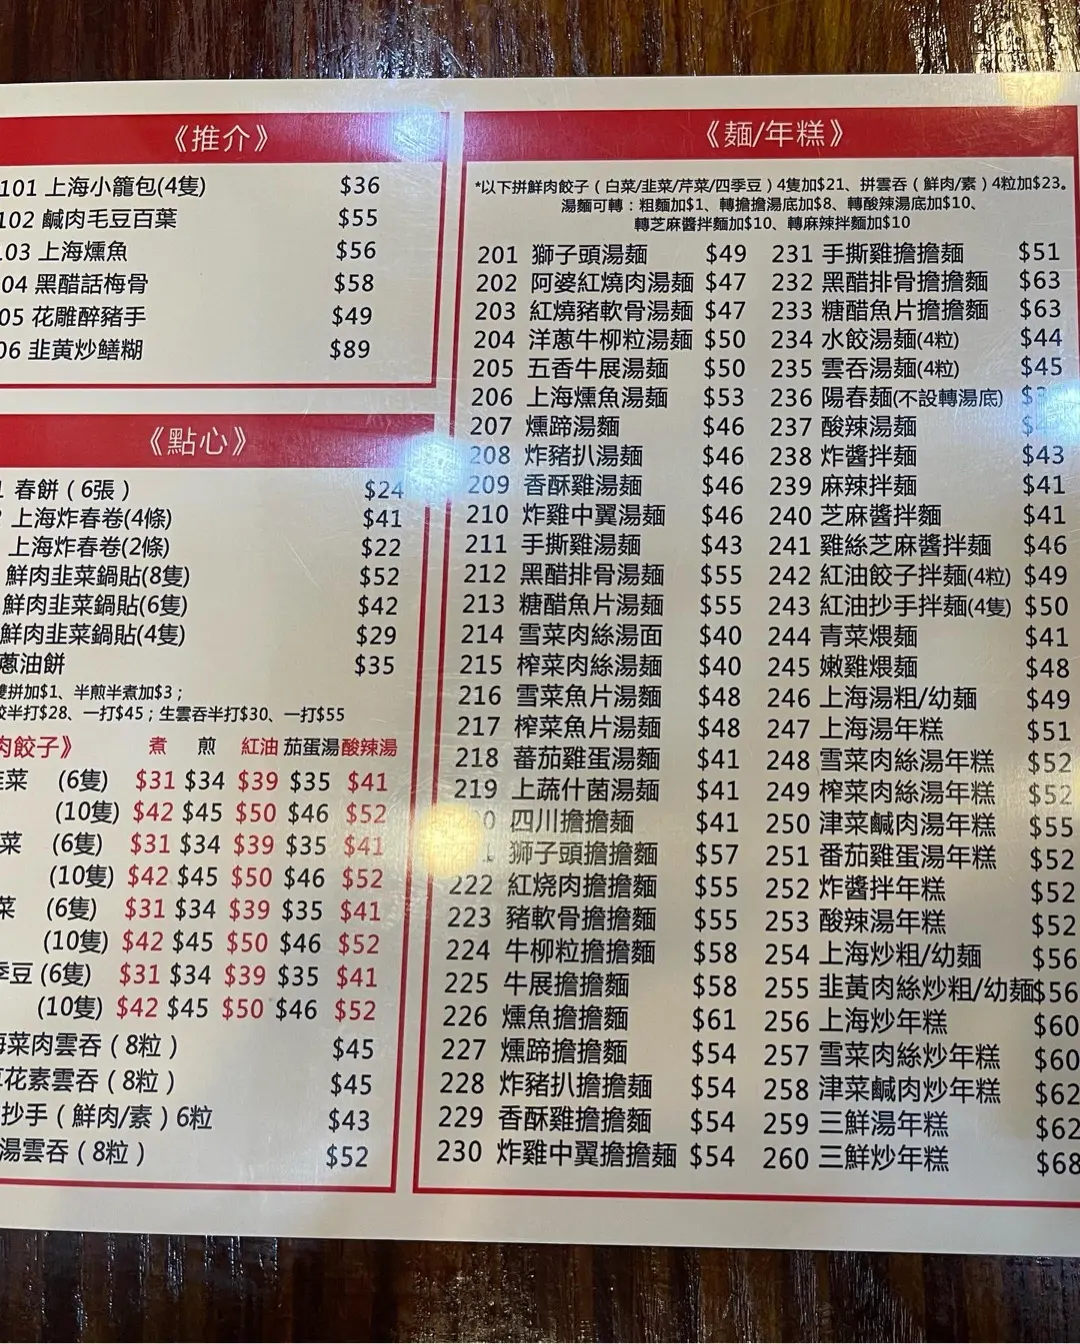 《推介》
101 上海小籠包(4隻) $36
102 鹹肉毛豆百葉 $55
03 上海燻魚 $56
04 黑醋話梅骨 $58
05 花雕醉豬手 $49
06 韭黃炒鱔糊 $89
《點心》
春餅 ( 6張 ) $24
上海炸春卷(4條) $41
上海炸春卷(2條) $22
鮮肉韭菜鍋貼(8隻) $52
鮮肉韭菜鍋貼(6隻) $42
鮮肉韭菜鍋貼(4隻) $29
蔥油餅 $35
雙拼加$1、半煎半煮加$3；
半打$28、一打$45；生雲吞半打$30、一打$55
肉餃子》 煮 煎 紅油 茄蛋湯 酸辣湯
菜 (6隻) $31 $34 $39 $35 $41
(10隻) $42 $45 $50 $46 $52
菜 (6隻) $31 $34 $39 $35 $41
(10隻) $42 $45 $50 $46 $52
菜 (6隻) $31 $34 $39 $35 $41
(10隻) $42 $45 $50 $46 $52
季豆 (6隻) $31 $34 $39 $35 $41
(10隻) $42 $45 $50 $46 $52
菜肉雲吞 ( 8粒 ) $45
花素雲吞 ( 8粒 ) $45
抄手 ( 鮮肉/素 ) 6粒 $43
湯雲吞 ( 8粒 ) $52
《麵/年糕》
*以下拼鮮肉餃子 ( 白菜/韭菜/芹菜/四季豆 ) 4隻加$21、拼雲吞 ( 鮮肉/素 ) 4粒加$23。
湯麵可轉：粗麵加$1、轉擔擔湯底加$8、轉酸辣湯底加$10、
轉芝麻醬拌麵加$10、轉麻辣拌麵加$10
201 獅子頭湯麵 $49
202 阿婆紅燒肉湯麵 $47
203 紅燒豬軟骨湯麵 $47
204 洋蔥牛柳粒湯麵 $50
205 五香牛展湯麵 $50
206 上海燻魚湯麵 $53
207 燻蹄湯麵 $46
208 炸豬扒湯麵 $46
209 香酥雞湯麵 $46
210 炸雞中翼湯麵 $46
211 手撕雞湯麵 $43
212 黑醋排骨湯麵 $55
213 糖醋魚片湯麵 $55
214 雪菜肉絲湯面 $40
215 榨菜肉絲湯麵 $40
216 雪菜魚片湯麵 $48
217 榨菜魚片湯麵 $48
218 蕃茄雞蛋湯麵 $41
219 上蔬什菌湯麵 $41
四川擔擔麵 $41
獅子頭擔擔麵 $57
222 紅烧肉擔擔麵 $55
223 豬軟骨擔擔麵 $55
224 牛柳粒擔擔麵 $58
225 牛展擔擔麵 $58
226 燻魚擔擔麵 $61
227 燻蹄擔擔麵 $54
228 炸豬扒擔擔麵 $54
229 香酥雞擔擔麵 $54
230 炸雞中翼擔擔麵 $54
231 手撕雞擔擔麵 $51
232 黑醋排骨擔擔麵 $63
233 糖醋魚片擔擔麵 $63
234 水餃湯麵(4粒) $44
235 雲吞湯麵(4粒) $45
236 陽春麵(不設轉湯底)
237 酸辣湯麵
238 炸醬拌麵 $43
239 麻辣拌麵 $41
240 芝麻醬拌麵 $41
241 雞絲芝麻醬拌麵 $46
242 紅油餃子拌麵(4粒) $49
243 紅油抄手拌麵(4隻) $50
244 青菜煨麵 $41
245 嫩雞煨麵 $48
246 上海湯粗/幼麵 $49
247 上海湯年糕 $51
248 雪菜肉絲湯年糕 $52
249 榨菜肉絲湯年糕 $52
250 津菜鹹肉湯年糕 $55
251 番茄雞蛋湯年糕 $52
252 炸醬拌年糕 $52
253 酸辣湯年糕 $52
254 上海炒粗/幼麵 $56
255 韭黃肉絲炒粗/幼麵$56
256 上海炒年糕 $60
257 雪菜肉絲炒年糕 $60
258 津菜鹹肉炒年糕 $62
259 三鮮湯年糕 $62
260 三鮮炒年糕 $68